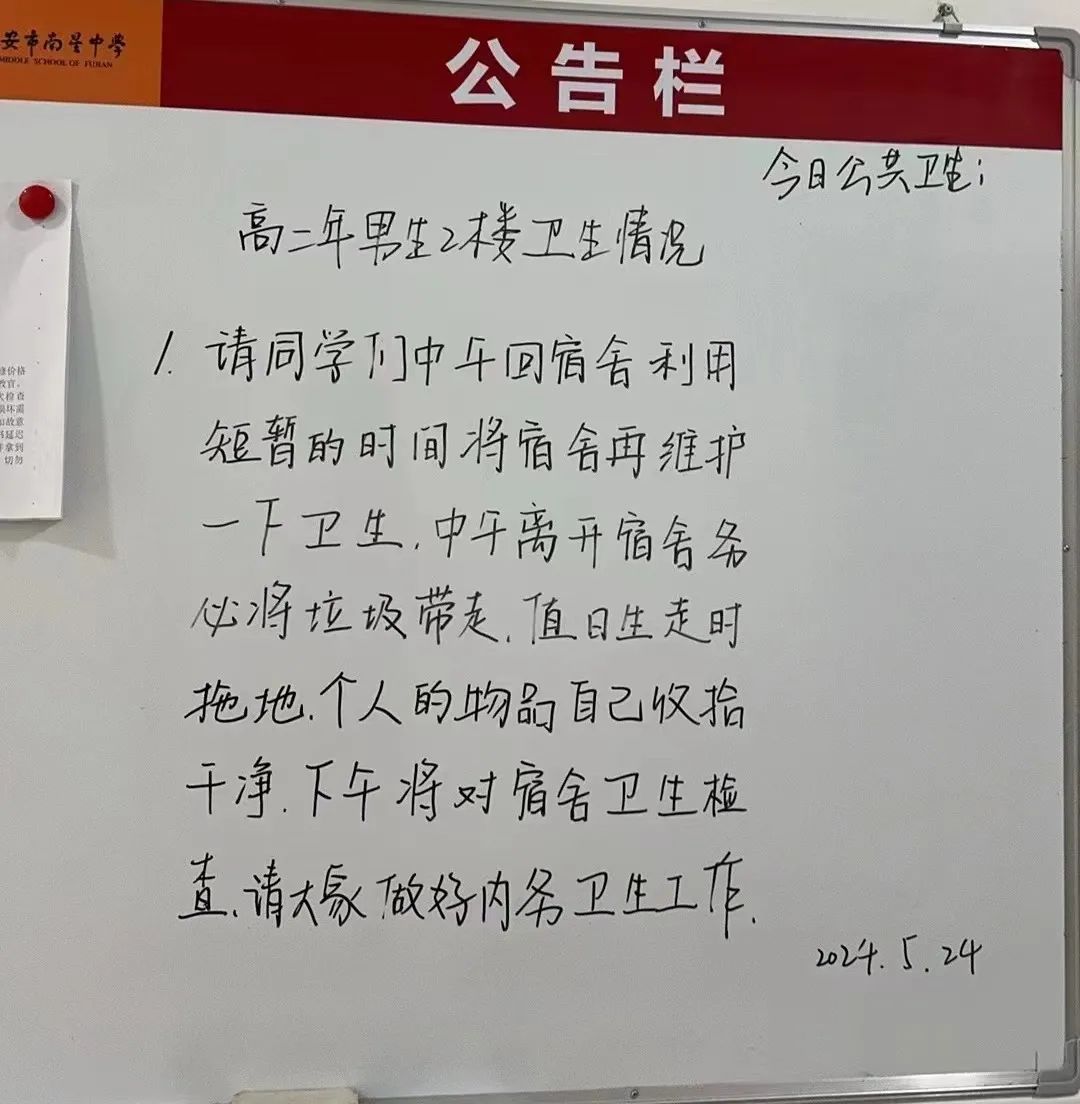 安市南星中学
MIDDLE SCHOOL OF FUJIAN
公告栏
今日公共卫生:
高二年男生2楼卫生情况
1. 请同学们中午回宿舍利用
短暂的时间将宿舍再维护
一下卫生.中午离开宿舍务
必将垃圾带走.值日生走时
拖地.个人的物品自己收拾
干净.下午将对宿舍卫生检
查.请大家做好内务卫生工作.
2024.5.24
修价格
教官,
次检查
损坏需
如故意
书延迟
拿到
切勿